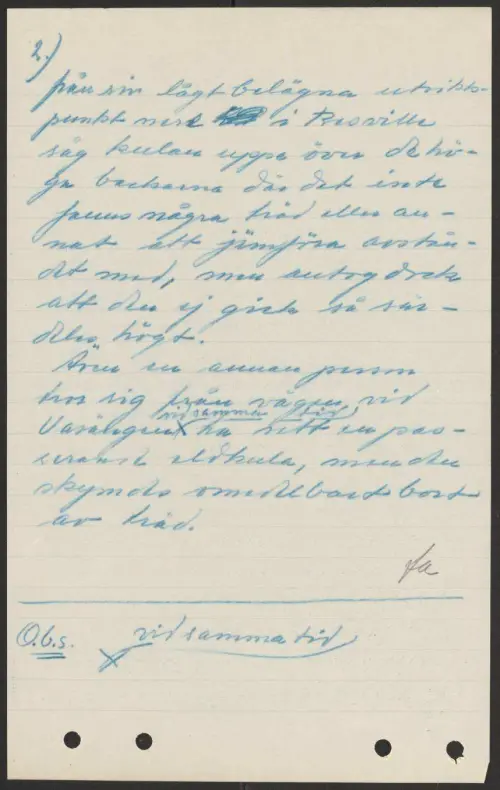 2.)
från sin lågt belägna utsikts-
punkt nere i Rosville
såg kulan uppe över de hö-
ga backarna där det inte
fanns några träd eller an-
nat att jämföra avstån-
det med, men antog dock
att den ej gick så sär-
deles högt.
Även en annan person
tros sig från vägen, vid
vid samma tid
Varängen x ha sett en pas-
serande eldkula, men den
skymdes omedelbart bort
av träd.
O.b.s. x vid samma tid